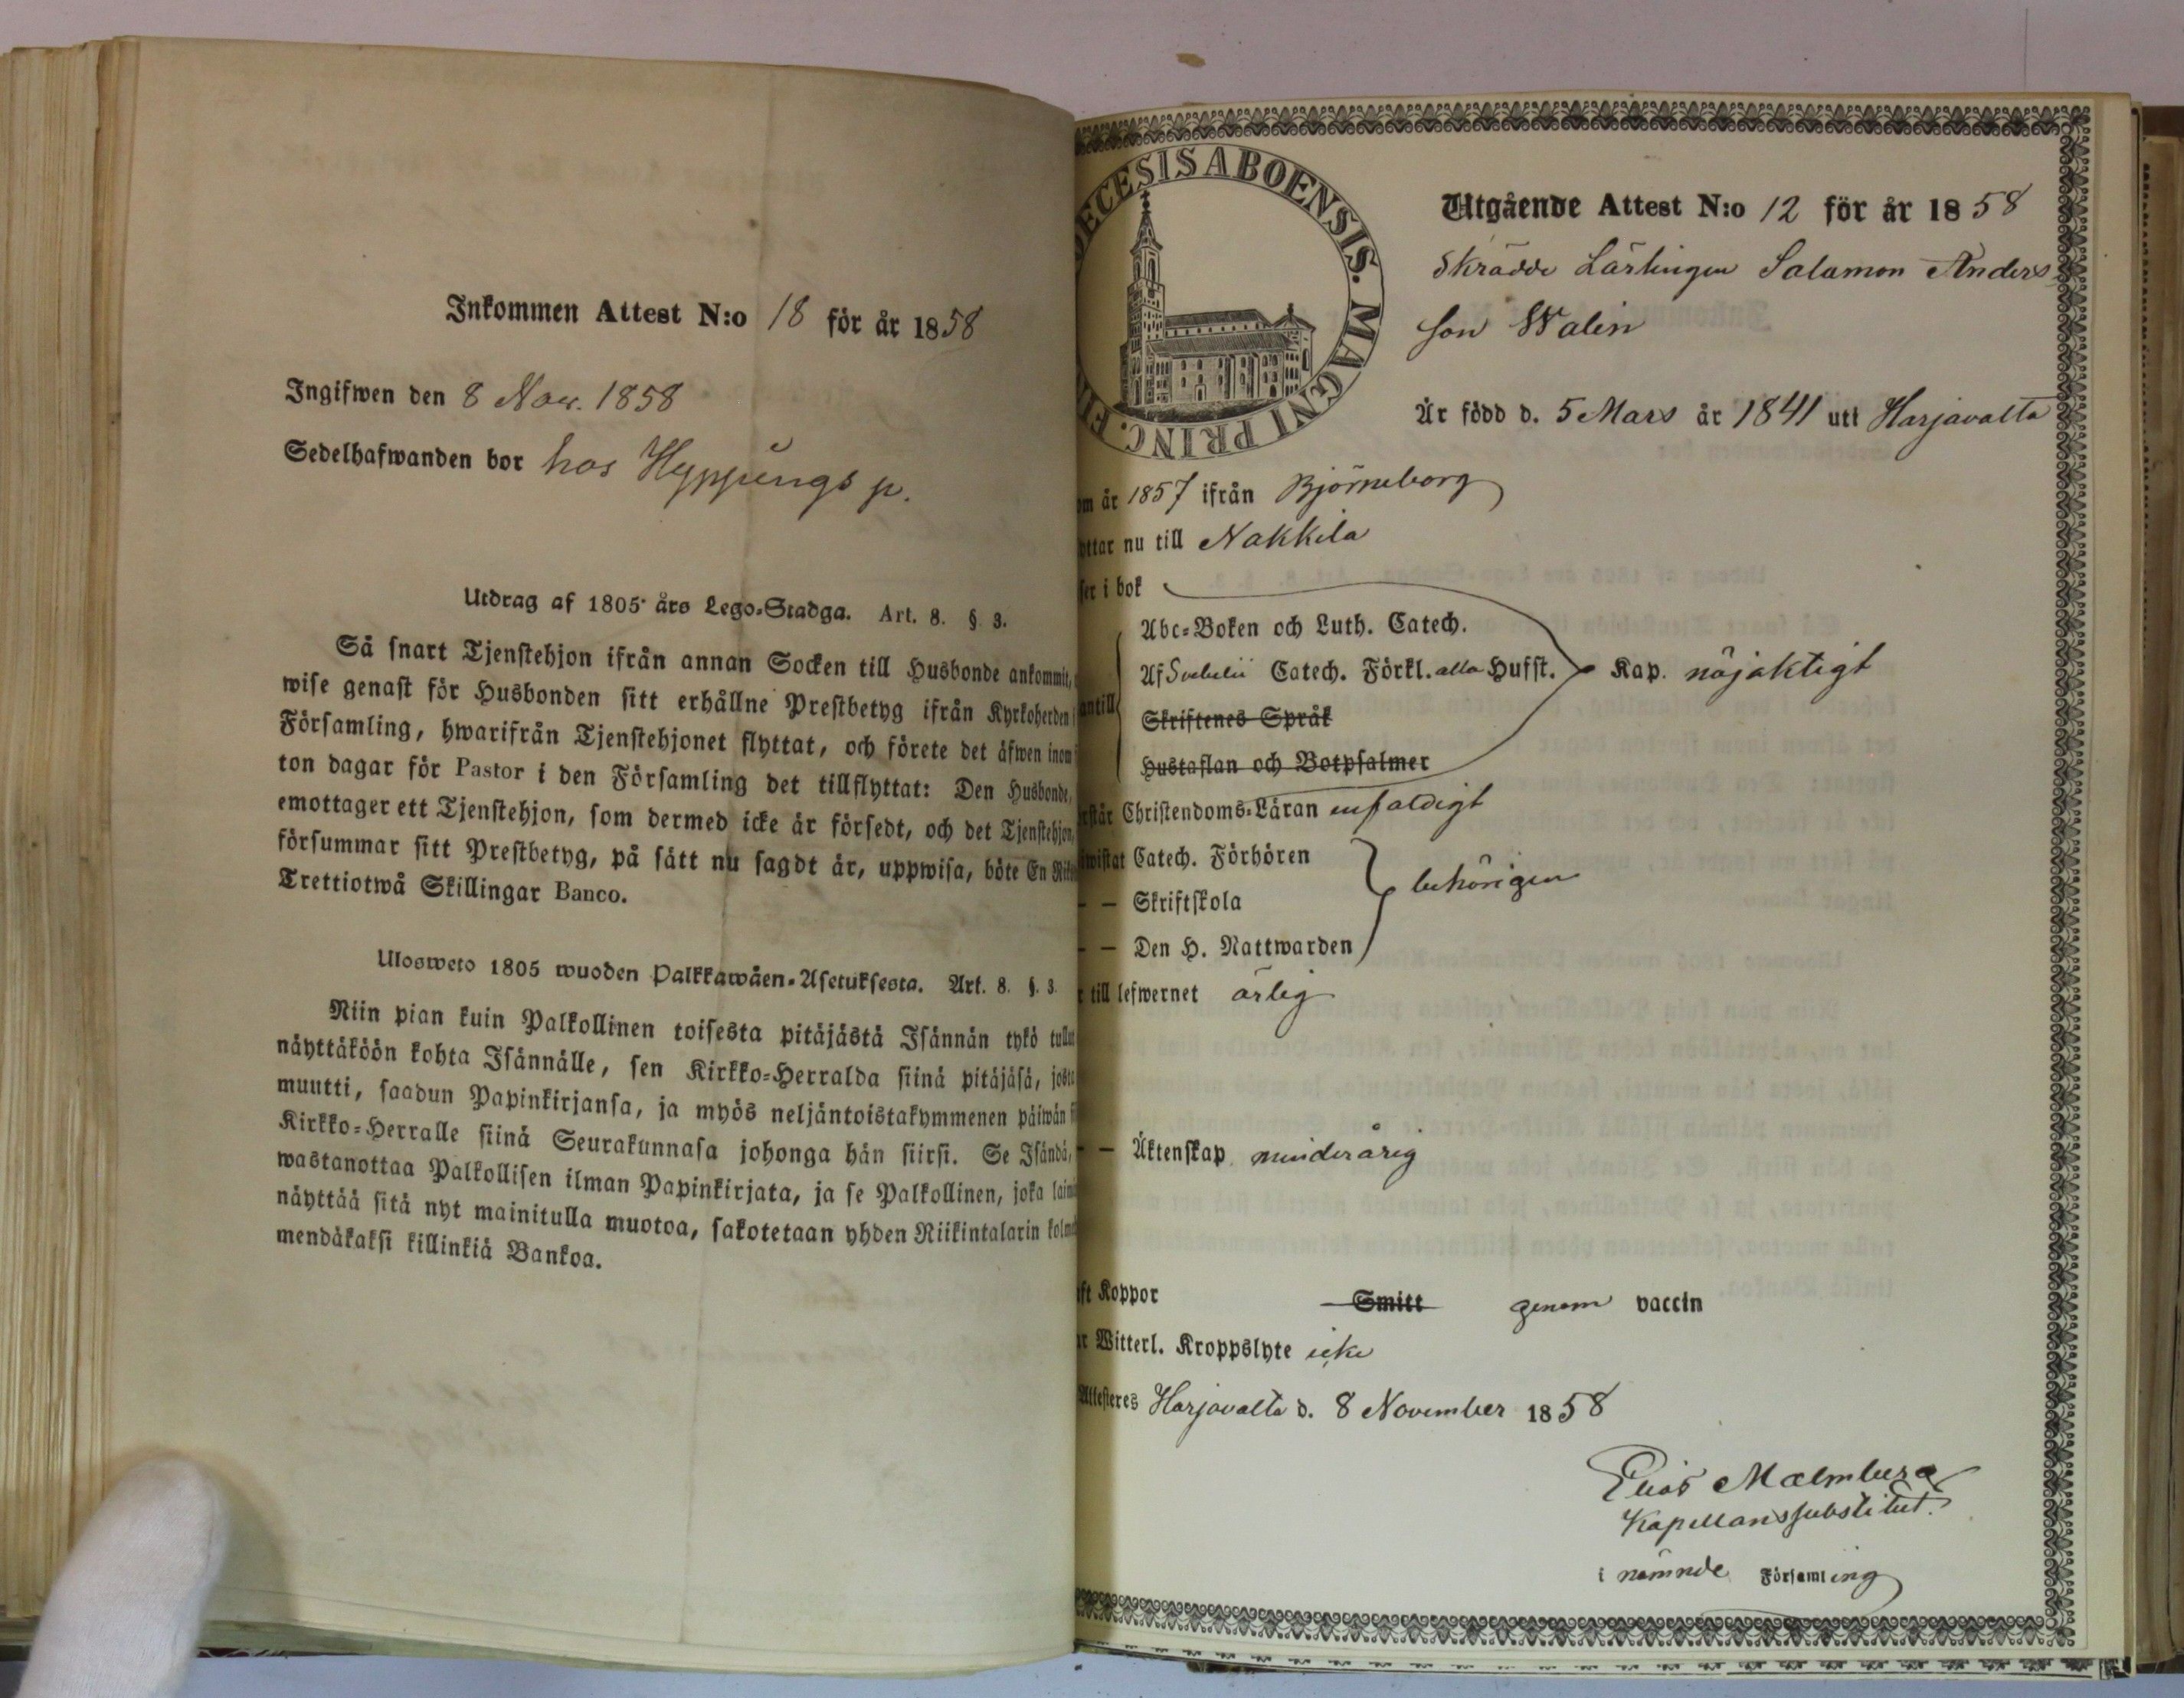 Inkommen Attest N:o 18 för år 1858
Ingifwen den 8 Nov. 1858
Sedelhafwanden bor hos Hyppings p.
Utdrag af 1805 års Lego-Stadga. Art. 8. §. 3.
Så snart Tjenstehjon ifrån annan Socken till Husbonde ankommit,
wise genast för Husbonden sitt erhållne Prestbetyg ifrån Kyrkoherden
Församling, hwarifrån Tjenstehjonet flyttat, och förete det äfwen inom
ton dagar för Pastor i den Församling det tillflyttat: Den Husbonde,
emottager ett Tjenstehjon, som dermed icke är försedt, och det Tjenstehjon,
försummar sitt Prestbetyg, på sätt nu sagdt är, uppwisa, böte En Rik
Trettiotwå Skillingar Banco.
Ulosweto 1805 wuoden Palkkawäen-Asetuksesta. Art. 8. §. 3.
Niin pian kuin Palkollinen toisesta pitäjästä Isännän tykö tullut
näyttäköön kohta Isännälle, sen Kirkko-Herralda siinä pitäjäsä, josta
muutti, saadun Papinkirjansa, ja myös neljäntoistakymmenen päiwän
Kirkko-Herralle siinä Seurakunnasa johonga hän siirsi. Se Isändä,
wastanottaa Palkollisen ilman Papinkirjata, ja se Palkollinen, joka laimi
näyttää sitä nyt mainitulla muotoa, sakotetaan yhden Riikintalarin kolme
mendäkaksi killinkiä Bankoa.
DECESIS ABOENSIS. MAGNI PRINC. FI
Utgående Attest N:o 12 för år 1858
Skrädde Lärlingen Salamon Anders
son Walin
Är född d. 5 Mars år 1841 uti Harjavalta
om år 1857 ifrån Björneborg
yttar nu till Nakkila
ser i bok
Abc-Boken och Luth. Catech.
Af Svebelii Catech. Förkl. alla Hufst. Kap. nöjaktigt
antill
Skriftenes Språk
Hustaflan och Botpsalmer
rstår Christendoms-Läran enfaldigt
wistat Catech. Förhören
behörigen
– – Skriftskola
– – Den H. Nattwarden
r till lefwernet ärlig
– – Äktenskap minderårig
ft Koppor Smitt genom vaccin
r Witterl. Kroppslyte icke
Attesteres Harjavalta d. 8 November 1858
Elias Malmberg
Kapellanssubstitut.
i nämnde Församling